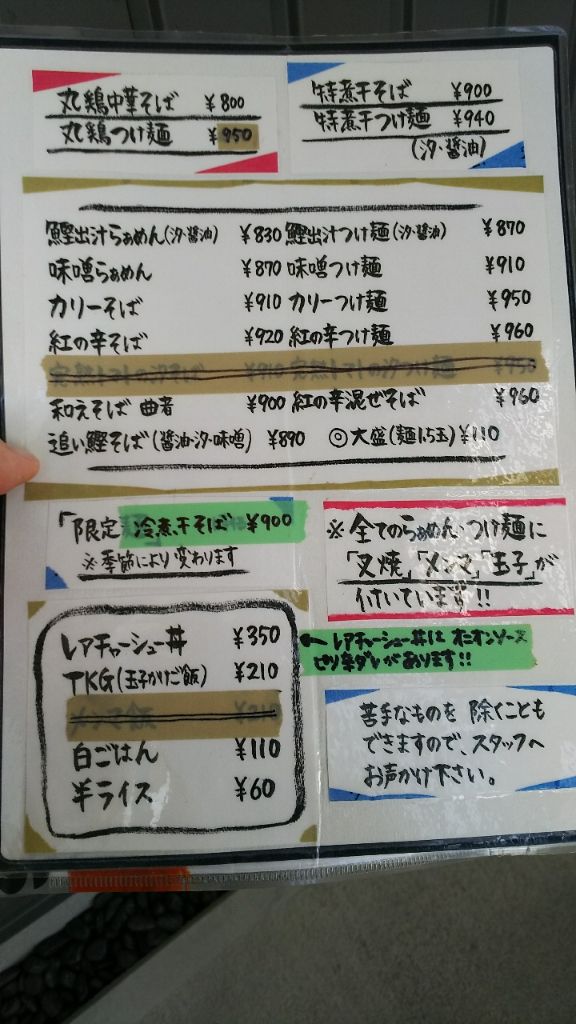 丸鶏中華そば ¥800
丸鶏つけ麺 ¥950
特煮干そば ¥900
特煮干つけ麺 ¥940
(汐・醤油)
鰹出汁らぁめん(汐・醤油) ¥830 鰹出汁つけ麺(汐・醤油) ¥870
味噌らぁめん ¥870 味噌つけ麺 ¥910
カリーそば ¥910 カリーつけ麺 ¥950
紅の辛そば ¥920 紅の辛つけ麺 ¥960
完熟トマトの汐そば ¥910 完熟トマトの汐つけ麺 ¥950
和えそば 曲者 ¥900 紅の辛混ぜそば ¥960
追い鰹そば(醤油・汐・味噌) ¥890 ◎大盛(麺1.5玉)¥110
「限定 冷煮干そば ¥900
※季節により変わります
※全てのらぁめん・つけ麺に
「叉焼」「メンマ」「玉子」が
付いています!!
レアチャーシュー丼 ¥350
TKG(玉子かけご飯) ¥210
メンマ飯 ¥210
白ごはん ¥110
半ライス ¥60
← レアチャーシュー丼は オニオンソース
ピリ辛ダレがあります!!
苦手なものを 除くことも
できますので、スタッフへ
お声かけ下さい。